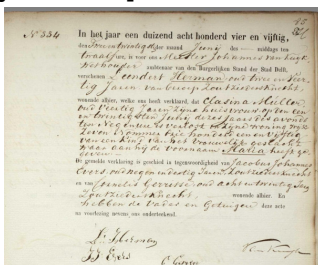 No. 334
In het jaar een duizend acht honderd vier en vijftig,
den der maand Juny des middags ten
twaalf ure, is voor ons Mr Johannes van Kuijk
Wethouder ambtenaar van den Burgerlijken Stand der Stad Delft,
verschenen Leendert Herman oud twee en veer
tig Jaren van beroep Zoutziedersknecht
wonende alhier, welke ons heeft verklaard, dat Clasina Mulder
oud veertig Jaren zyne huisvrouw op den een
en twintigsten Juny dezes jaars des avonds
ten Negen ure
Zeven
van een Kind van het vrouwelijk geslacht
waar aan hy de voornaam Maria heeft ge
geven
De gemelde verklaring is geschied in tegenwoordigheid van Jacobus Johannes
Evers oud negen en dertig Jaren, Zoutziedersknecht
en van Cornelis Gerresse oud acht en twintig Jaren
Zoutziedersknecht wonende alhier. En
hebben de Vader en Getuigen deze acte
na voorlezing nevens ons onderteekend.
L. Herman
J J Evers
C Gerresse